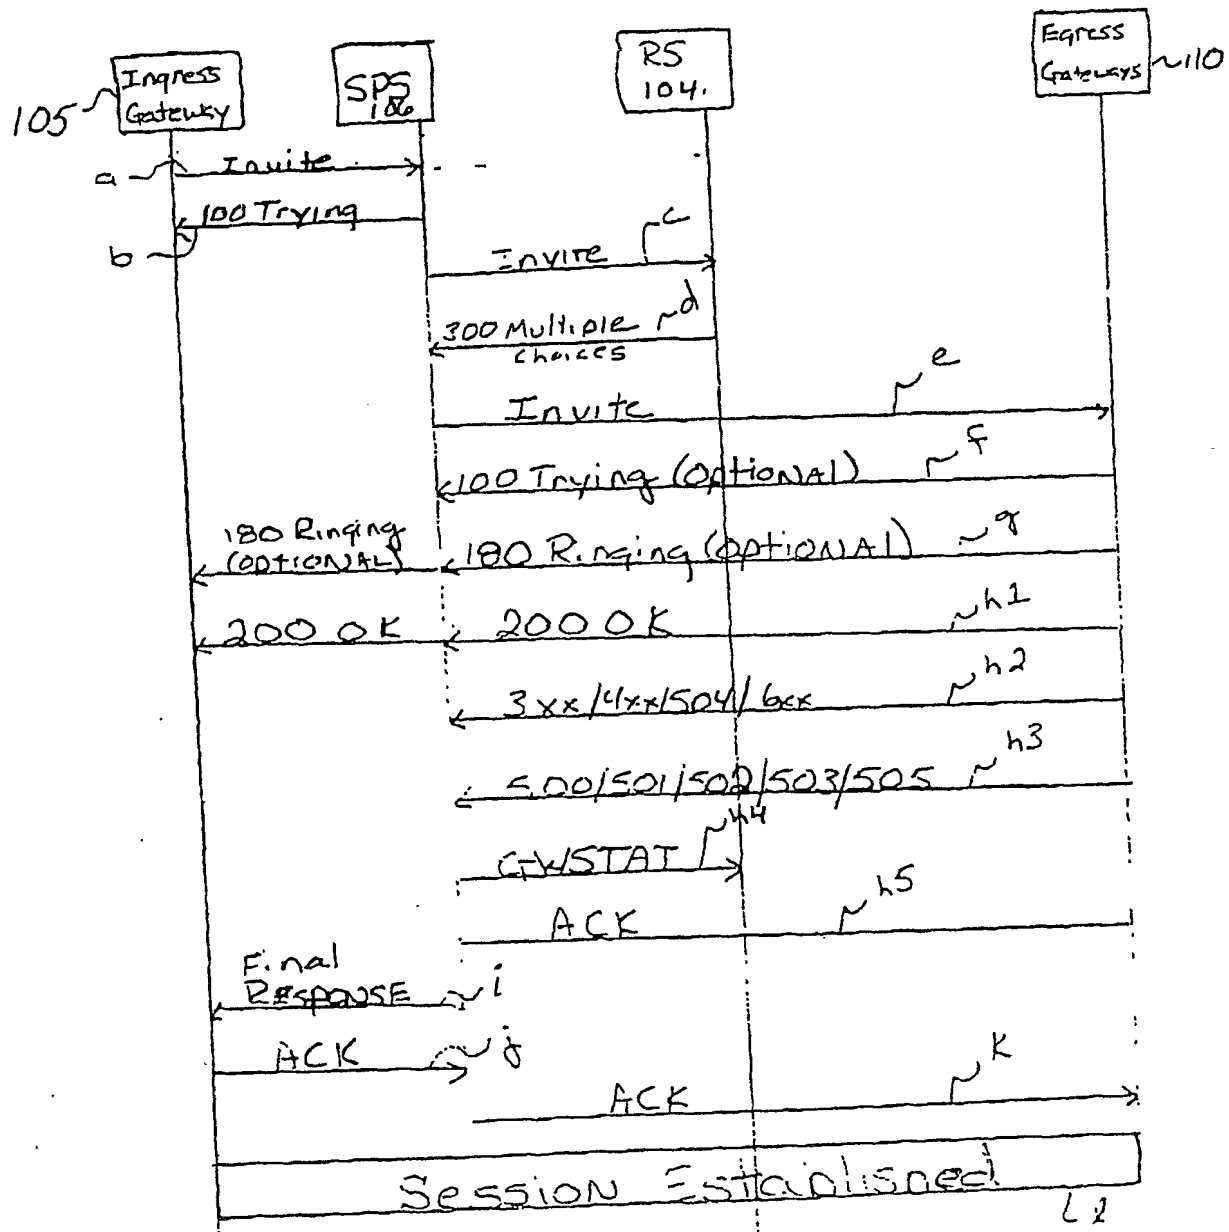 Ingress
Gateway
105
SPS
106
RS
104.
Egress
Gateways
110
a
Invite
100 Trying
b
Invite
c
300 Multiple
choices
d
Invite
e
100 Trying (OPTIONAL)
f
180 Ringing
(OPTIONAL)
180 Ringing (OPTIONAL)
g
200 OK
200 OK
h1
3xx/4xx/504/6xx
h2
500/501/502/503/505
h3
GWSTAT
h4
ACK
h5
Final
RESPONSE
i
ACK
j
ACK
K
Session Established